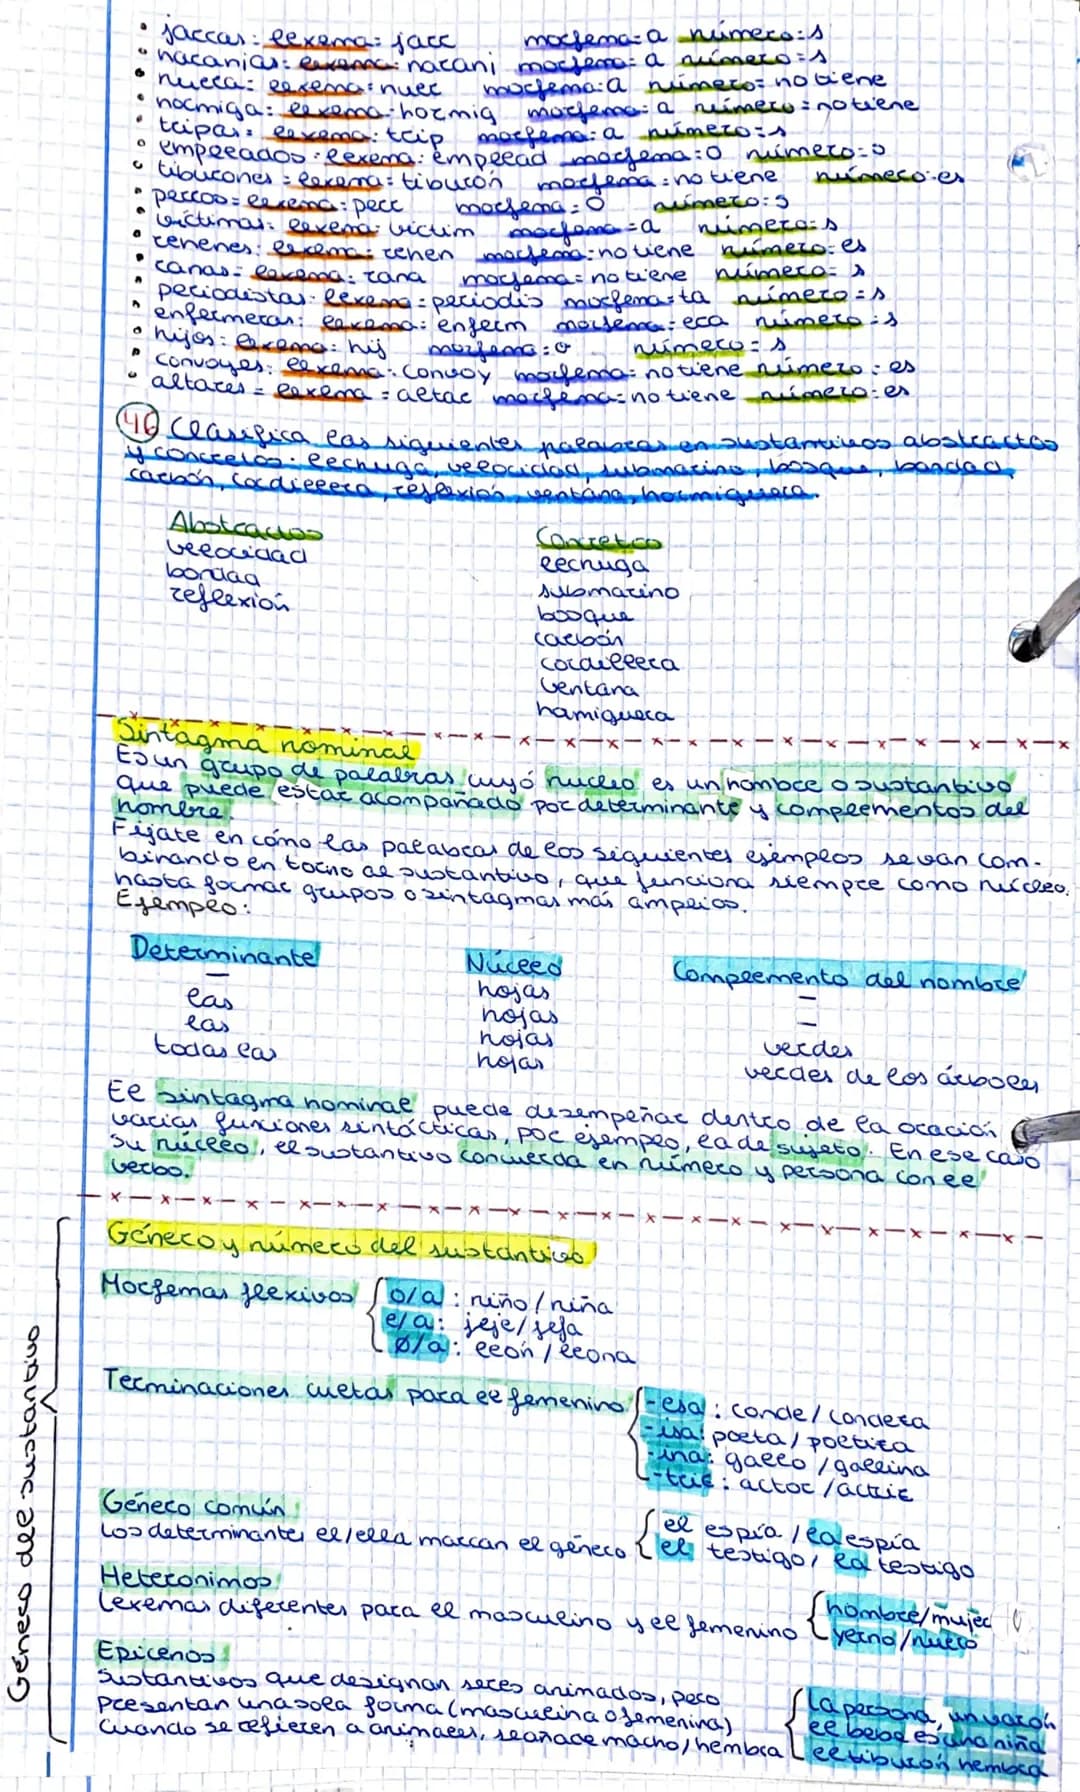 • jarras: lexema: jarr morfema: a número: s
• naranjas: lexema: naranj morfema: a número = s
• nuera: lexema: nuer morfema: a número = no tiene
• hormiga: lexema: hormig morfema: a número = no tiene
• tripas: lexema: trip morfema: a número: s
• empleados: lexema: emplead morfema: o número: s
• tiburones: lexema: tiburón morfema: no tiene número: es
• perros: lexema: perr morfema: o número: s
• víctimas: lexema: víctim morfema = a número: s
• rehenes: lexema: rehen morfema: no tiene número: es
• ranas: lexema: rana morfema: no tiene número: s
• periodistas: lexema: periodis morfema: ta número = s
• enfermeras: lexema: enferm morfema: era número: s
• hijos: lexema: hij morfema: o número = s
• convoyes: lexema: convoy morfema: no tiene número: es
• altares = lexema = altar morfema: no tiene número: es
46 Clasifica las siguientes palabras en sustantivos abstractos
y concretos: lechuga, velocidad, submarino, bosque, bondad,
carbón, cordillera, reflexión, ventana, hormiguera.
Abstractos Concretos
velocidad lechuga
bondad submarino
reflexión bosque
carbón
cordillera
ventana
hamiguera
Sintagma nominal
Es un grupo de palabras cuyó nucleo es un nombre o sustantivo
que puede estar acompañado por determinante y complementos del
nombre.
Fíjate en cómo las palabras de los siguientes ejemplos se van com-
binando en torno al sustantivo, que funciona siempre como núcleo,
hasta formar grupos o sintagmas más amplios.
Ejemplo:
Determinante Núcleo Complemento del nombre
— hojas —
las hojas —
las hojas verdes
todas las hojas verdes de los árboles
El sintagma nominal puede desempeñar dentro de la oración
varias funciones sintácticas, por ejemplo, la de sujeto. En ese caso
su núcleo, el sustantivo concuerda en número y persona con el
verbo.
Género y número del sustantivo
Género del sustantivo
Morfemas flexivos o/a : niño/niña
e/a: jefe/jefa
Ø/a: león/leona
Terminaciones cultas para el femenino -esa : conde/condesa
-isa: poeta/poetisa
-ina: gallo/gallina
-triz: actor/actriz
Género común
Los determinantes el/ella marcan el género el espía / la espía
el testigo/ la testigo
Heterónimos
Lexemas diferentes para el masculino y el femenino hombre/mujer
yerno/nuera
Epicenos
Sustantivos que designan seres animados, pero
presentan una sola forma (masculina o femenina)
Cuando se refieren a animales, se añade macho/hembra
La persona, un varón
el bebé es una niña
el tiburón hembra